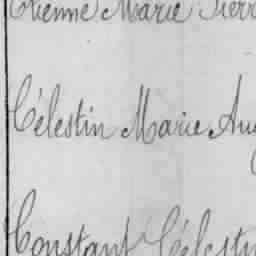 Etienne Marie Pierr
Célestin Marie Aug
Constant Célestin